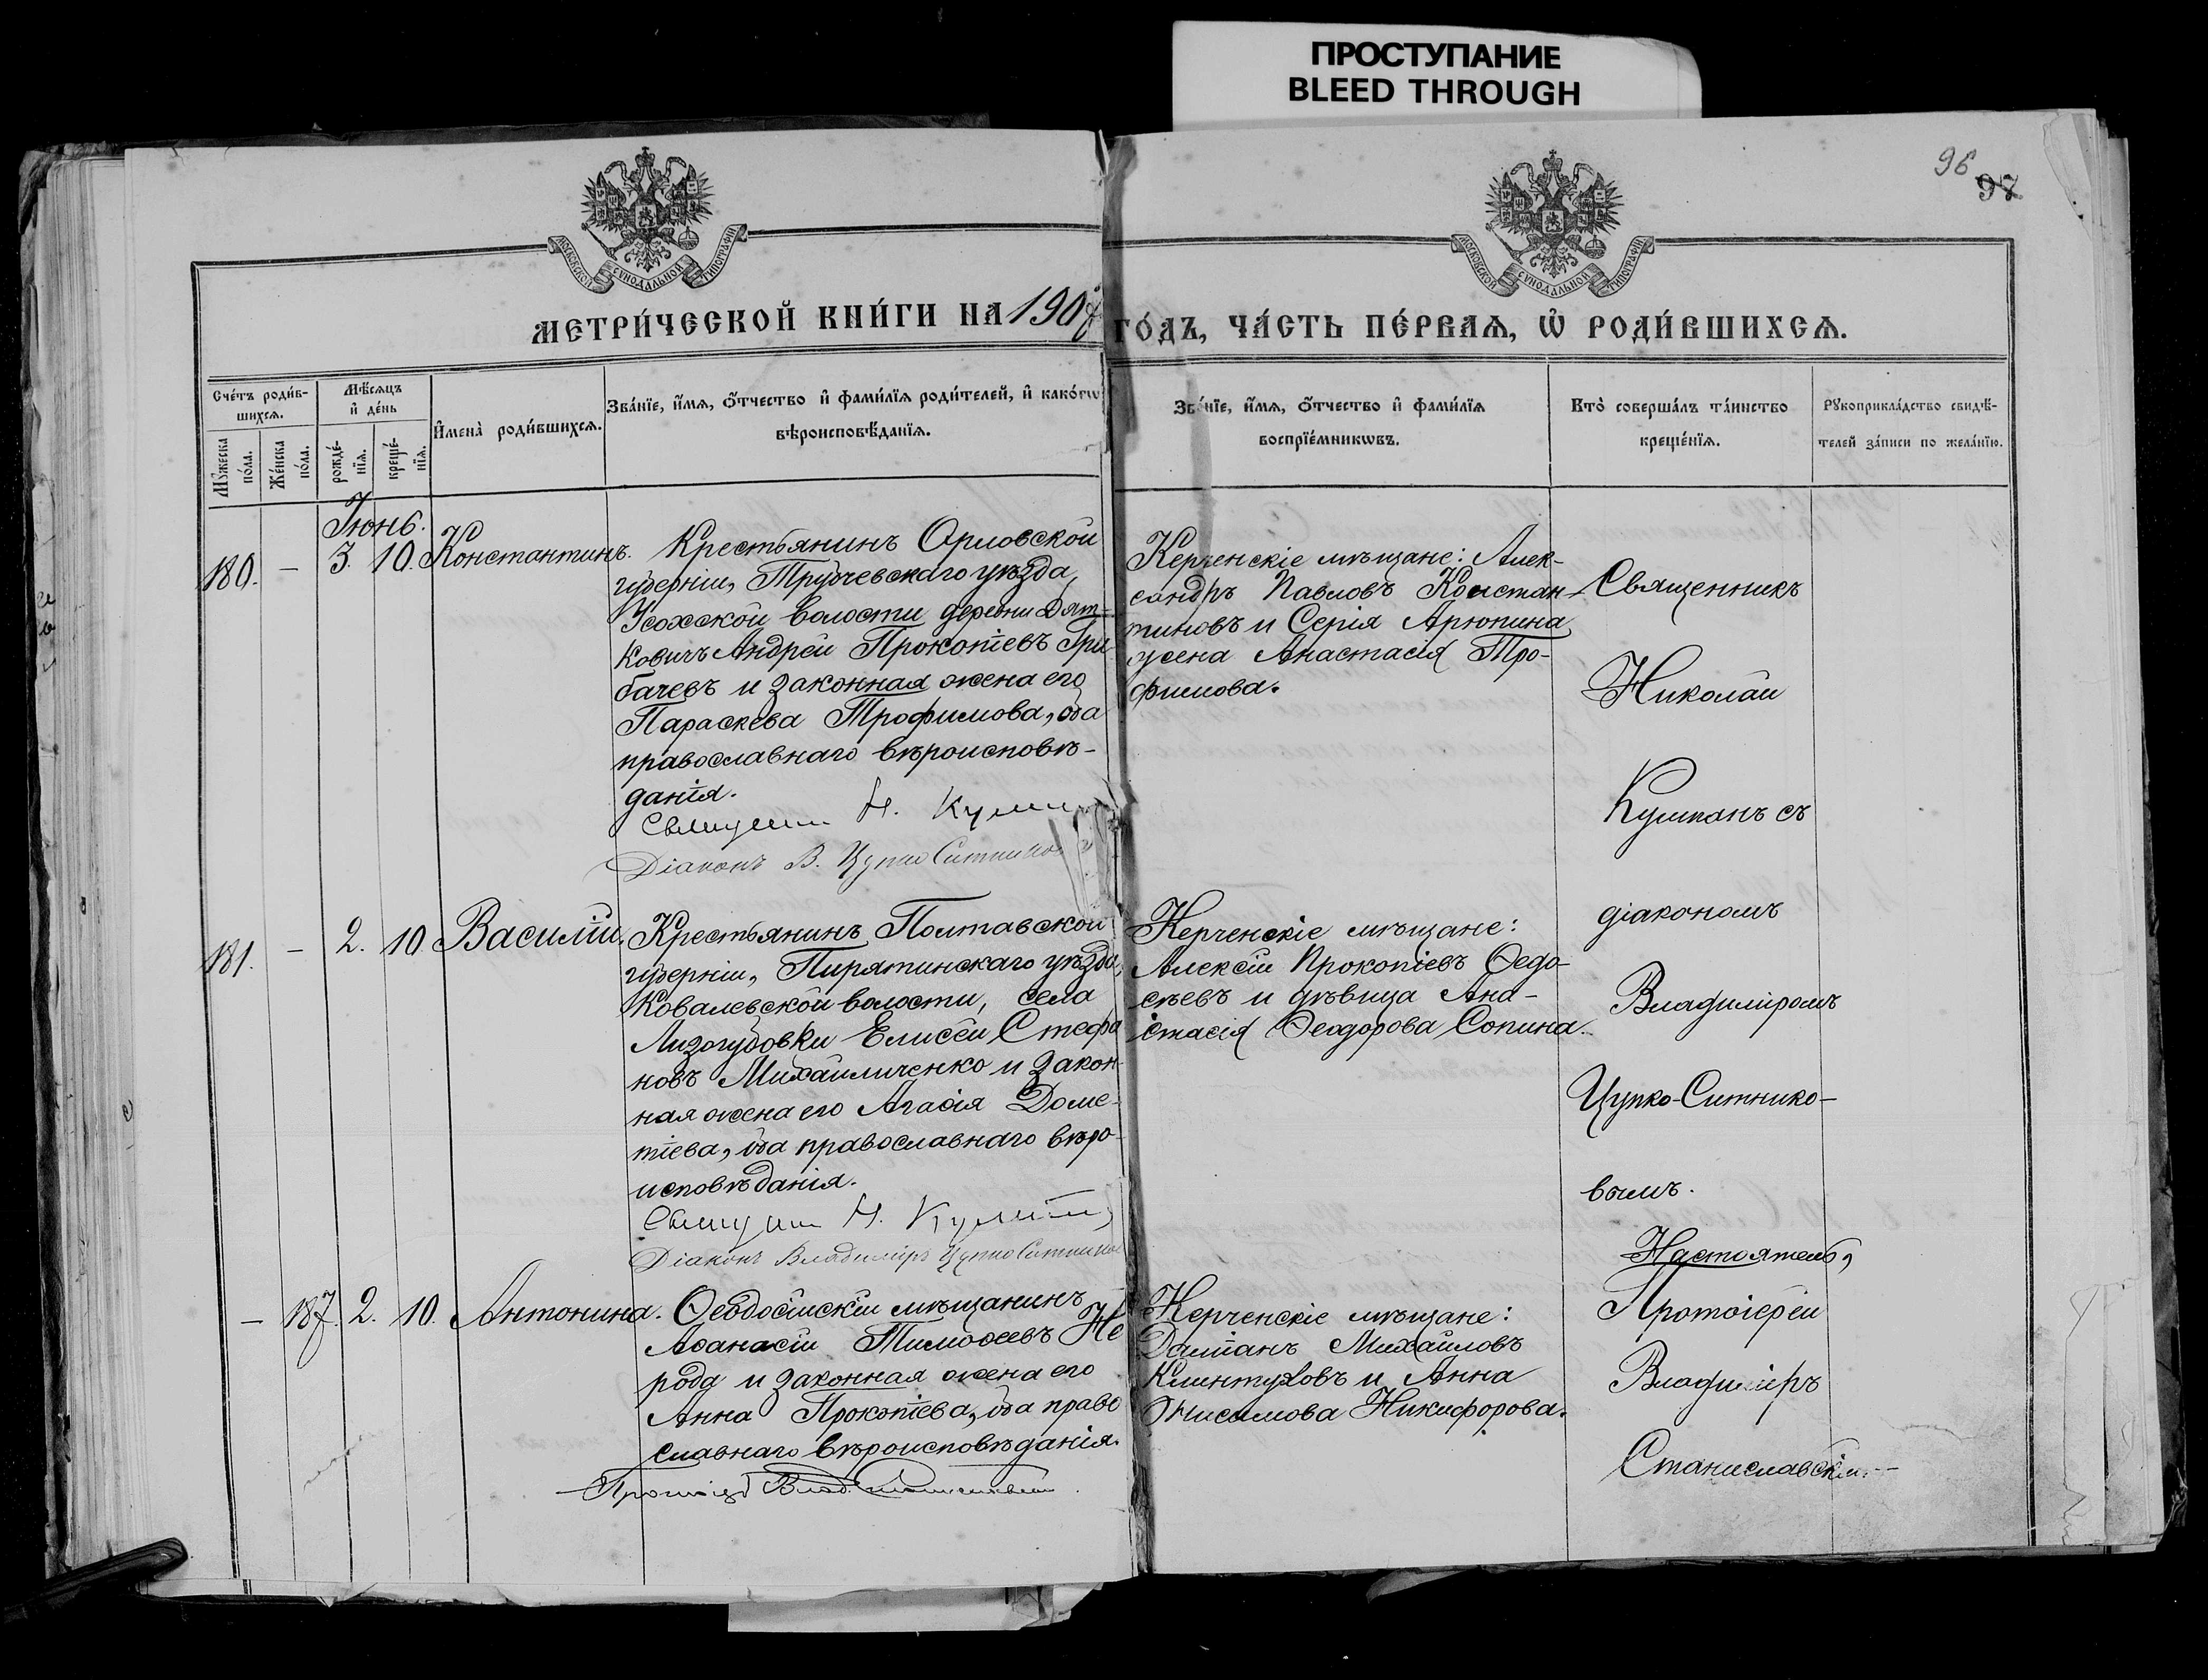 ПРОСТУПАНИЕ
BLEED THROUGH
96
97
МОСКОВСКОЙ СѴНОДАЛЬНОЙ ТИПОГРАФІИ
МОСКОВСКОЙ СѴНОДАЛЬНОЙ ТИПОГРАФІИ
МЕТРИ́ЧЕСКОЙ КНИ́ГИ НА 1907
ГО́ДЪ, ЧА́СТЬ ПЕ́РВАѦ, Ѡ҆ РОДИ́ВШИХСѦ.
Сче́тъ роди́в-
шихсѧ.
Мѣ́сѧцъ
и҆ де́нь
И҆мена̀ роди́вшихсѧ.
Зва́нїе, и҆́мѧ, ѻ҆́тчество и҆ фами́лїѧ роди́телей, и҆ како́гѡ
вѣроисповѣ́данїѧ.
Мꙋ́жеска
по́ла.
Же́нска
по́ла.
рожде́-
нїѧ.
креще́-
нїѧ.
Зва́нїе, и҆́мѧ, ѻ҆́тчество и҆ фами́лїѧ
воспрїе́мникѡвъ.
Кто̀ соверша́лъ та́инство
креще́нїѧ.
Рꙋкоприкла́дство свидѣ́-
телей за́писи по жела́нїю.
Іюнь.
180. – 3. 10. Константинъ.
Крестьянинъ Орловской
губерніи, Трубчевскаго уѣзда
Усохской волости деревни Дят-
ковичъ Андрей Прокопіевъ Гри
бачевъ и законная жена его
Параскева Трофимова, оба
православнаго вѣроисповѣ-
данія.
Н.
Діаконъ В. Цупко Ситников
Керченскіе мѣщане: Алек-
сандръ Павловъ Констан-
тиновъ и Арюпина
жена Анастасія Тро-
фимова.
Священникъ
Николай
съ
діакономъ
Владиміромъ
Цупко-Ситнико-
вымъ.
181. – 2. 10. Василій.
Крестьянинъ Полтавской
губерніи, Пирятинскаго уѣзда,
Ковалевской волости, села
Лизогубовки Елисей Стефа
новъ Михайличенко и закон-
ная жена его Агафія Доме-
тіева, оба православнаго вѣро-
исповѣданія.
Н.
Діаконъ Владиміръ Цупко Ситников
Керченскіе мѣщане:
Алексій Прокопіевъ Ѳедо-
сѣевъ и дѣвица Ана-
стасія Ѳеодорова Сопина.
– 187. 2. 10. Антонина.
Ѳеодосійскій мѣщанинъ
Аѳанасій Тимоѳеевъ Не
рода и законная жена его
Анна Прокопіева, оба право
славнаго вѣроисповѣданія.
Керченскіе мѣщане:
Даміанъ Михайловъ
Клинтуховъ и Анна
Онисимова Никифорова.
Настоятель,
Протоіерей
Владиміръ
Станиславскій.